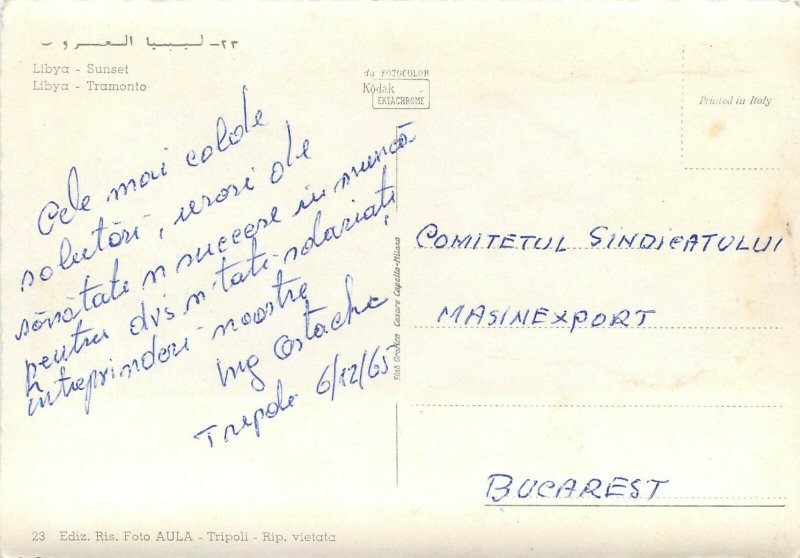 ٢٣- ليبيا الغروب
Libya - Sunset
Libya - Tramonto
da FOTOCOLOR
Kodak
EKTACHROME
Printed in Italy
Cele mai calde
salutări, urări de
sănătate și succese în muncă
pentru dvs și tati salariați
întreprinderi noastre
Ing Ostache
Tripoli 6/12/65
COMITETUL SINDICATULUI
MASINEXPORT
BUCAREST
Stab Grafico Cesare Capello-Milano
23 Ediz. Ris. Foto AULA - Tripoli - Rip. vietata